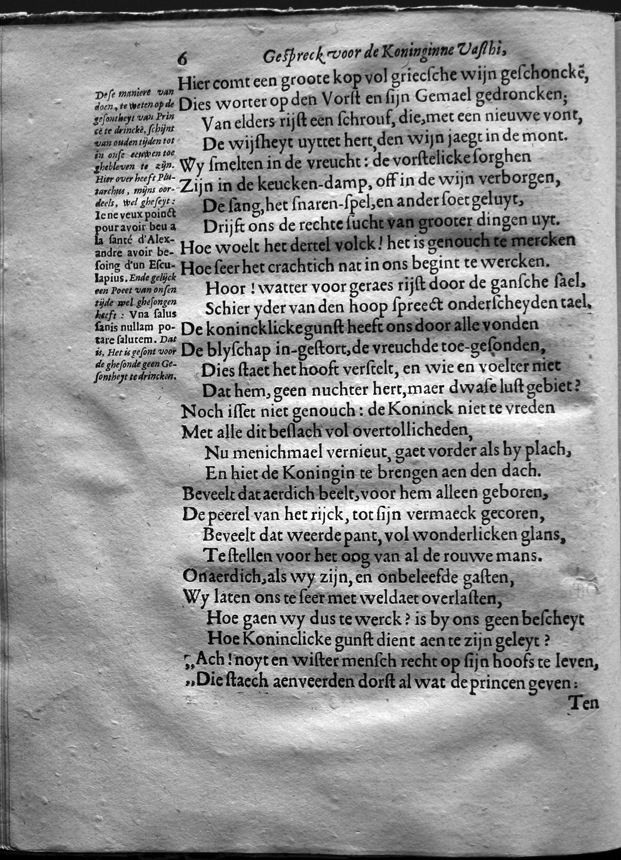 6 Gespreck voor de Koninginne Vasthi,
Hier comt een groote kop vol griecsche wijn geschonckē,
Dies worter op den Vorst en sijn Gemael gedroncken;
Van elders rijst een schrouf, die, met een nieuwe vont,
De wijsheyt uyttet hert, den wijn jaegt in de mont.
Wy smelten in de vreucht: de vorstelicke sorghen
Zijn in de keucken-damp, off in de wijn verborgen,
De sang, het snaren-spel, en ander soet geluyt,
Drijft ons de rechte sucht van grooter dingen uyt.
Hoe woelt het dertel volck! het is genouch te mercken
Hoe seer het crachtich nat in ons begint te wercken.
Hoor! watter voor geraes rijst door de gansche sael,
Schier yder van den hoop spreect onderscheyden tael,
De konincklicke gunst heeft ons door alle vonden
De blyschap in-gestort, de vreuchde toe-gesonden,
Dies staet het hooft verstelt, en wie en voelter niet
Dat hem, geen nuchter hert, maer dwase lust gebiet?
Noch isset niet genouch: de Koninck niet te vreden
Met alle dit beslach vol overtollicheden,
Nu menichmael vernieut, gaet vorder als hy plach,
En hiet de Koningin te brengen aen den dach.
Beveelt dat aerdich beelt, voor hem alleen geboren,
De peerel van het rijck, tot sijn vermaeck gecoren,
Beveelt dat weerde pant, vol wonderlicken glans,
Te stellen voor het oog van al de rouwe mans.
Onaerdich, als wy zijn, en onbeleefde gasten,
Wy laten ons te seer met weldaet overlasten,
Hoe gaen wy dus te werck? is by ons geen bescheyt
Hoe Koninclicke gunst dient aen te zijn geleyt?
„Ach! noyt en wister mensch recht op sijn hoofs te leven,
„Die staech aenveerden dorst al wat de princen geven:
Ten
Dese maniere van
doen, te weten op de
gesontheyt van Prin
cē te drinckē, schijnt
van ouden tijden tot
in onse eeuwen toe
ghebleven te zijn.
Hier over heeft Plu-
tarchus, mijns oor-
deels, wel gheseyt:
Ie ne veux poinct
pour avoir beu a
la santé d'Alex-
andre avoir be-
soing d'un Escu-
lapius. Ende gelijck
een Poeet van onsen
tijde wel ghesongen
heeft: Vna salus
sanis nullam po-
tare salutem. Dat
is, Het is gesont voor
de ghesonde geen Ge-
sontheyt te drincken.